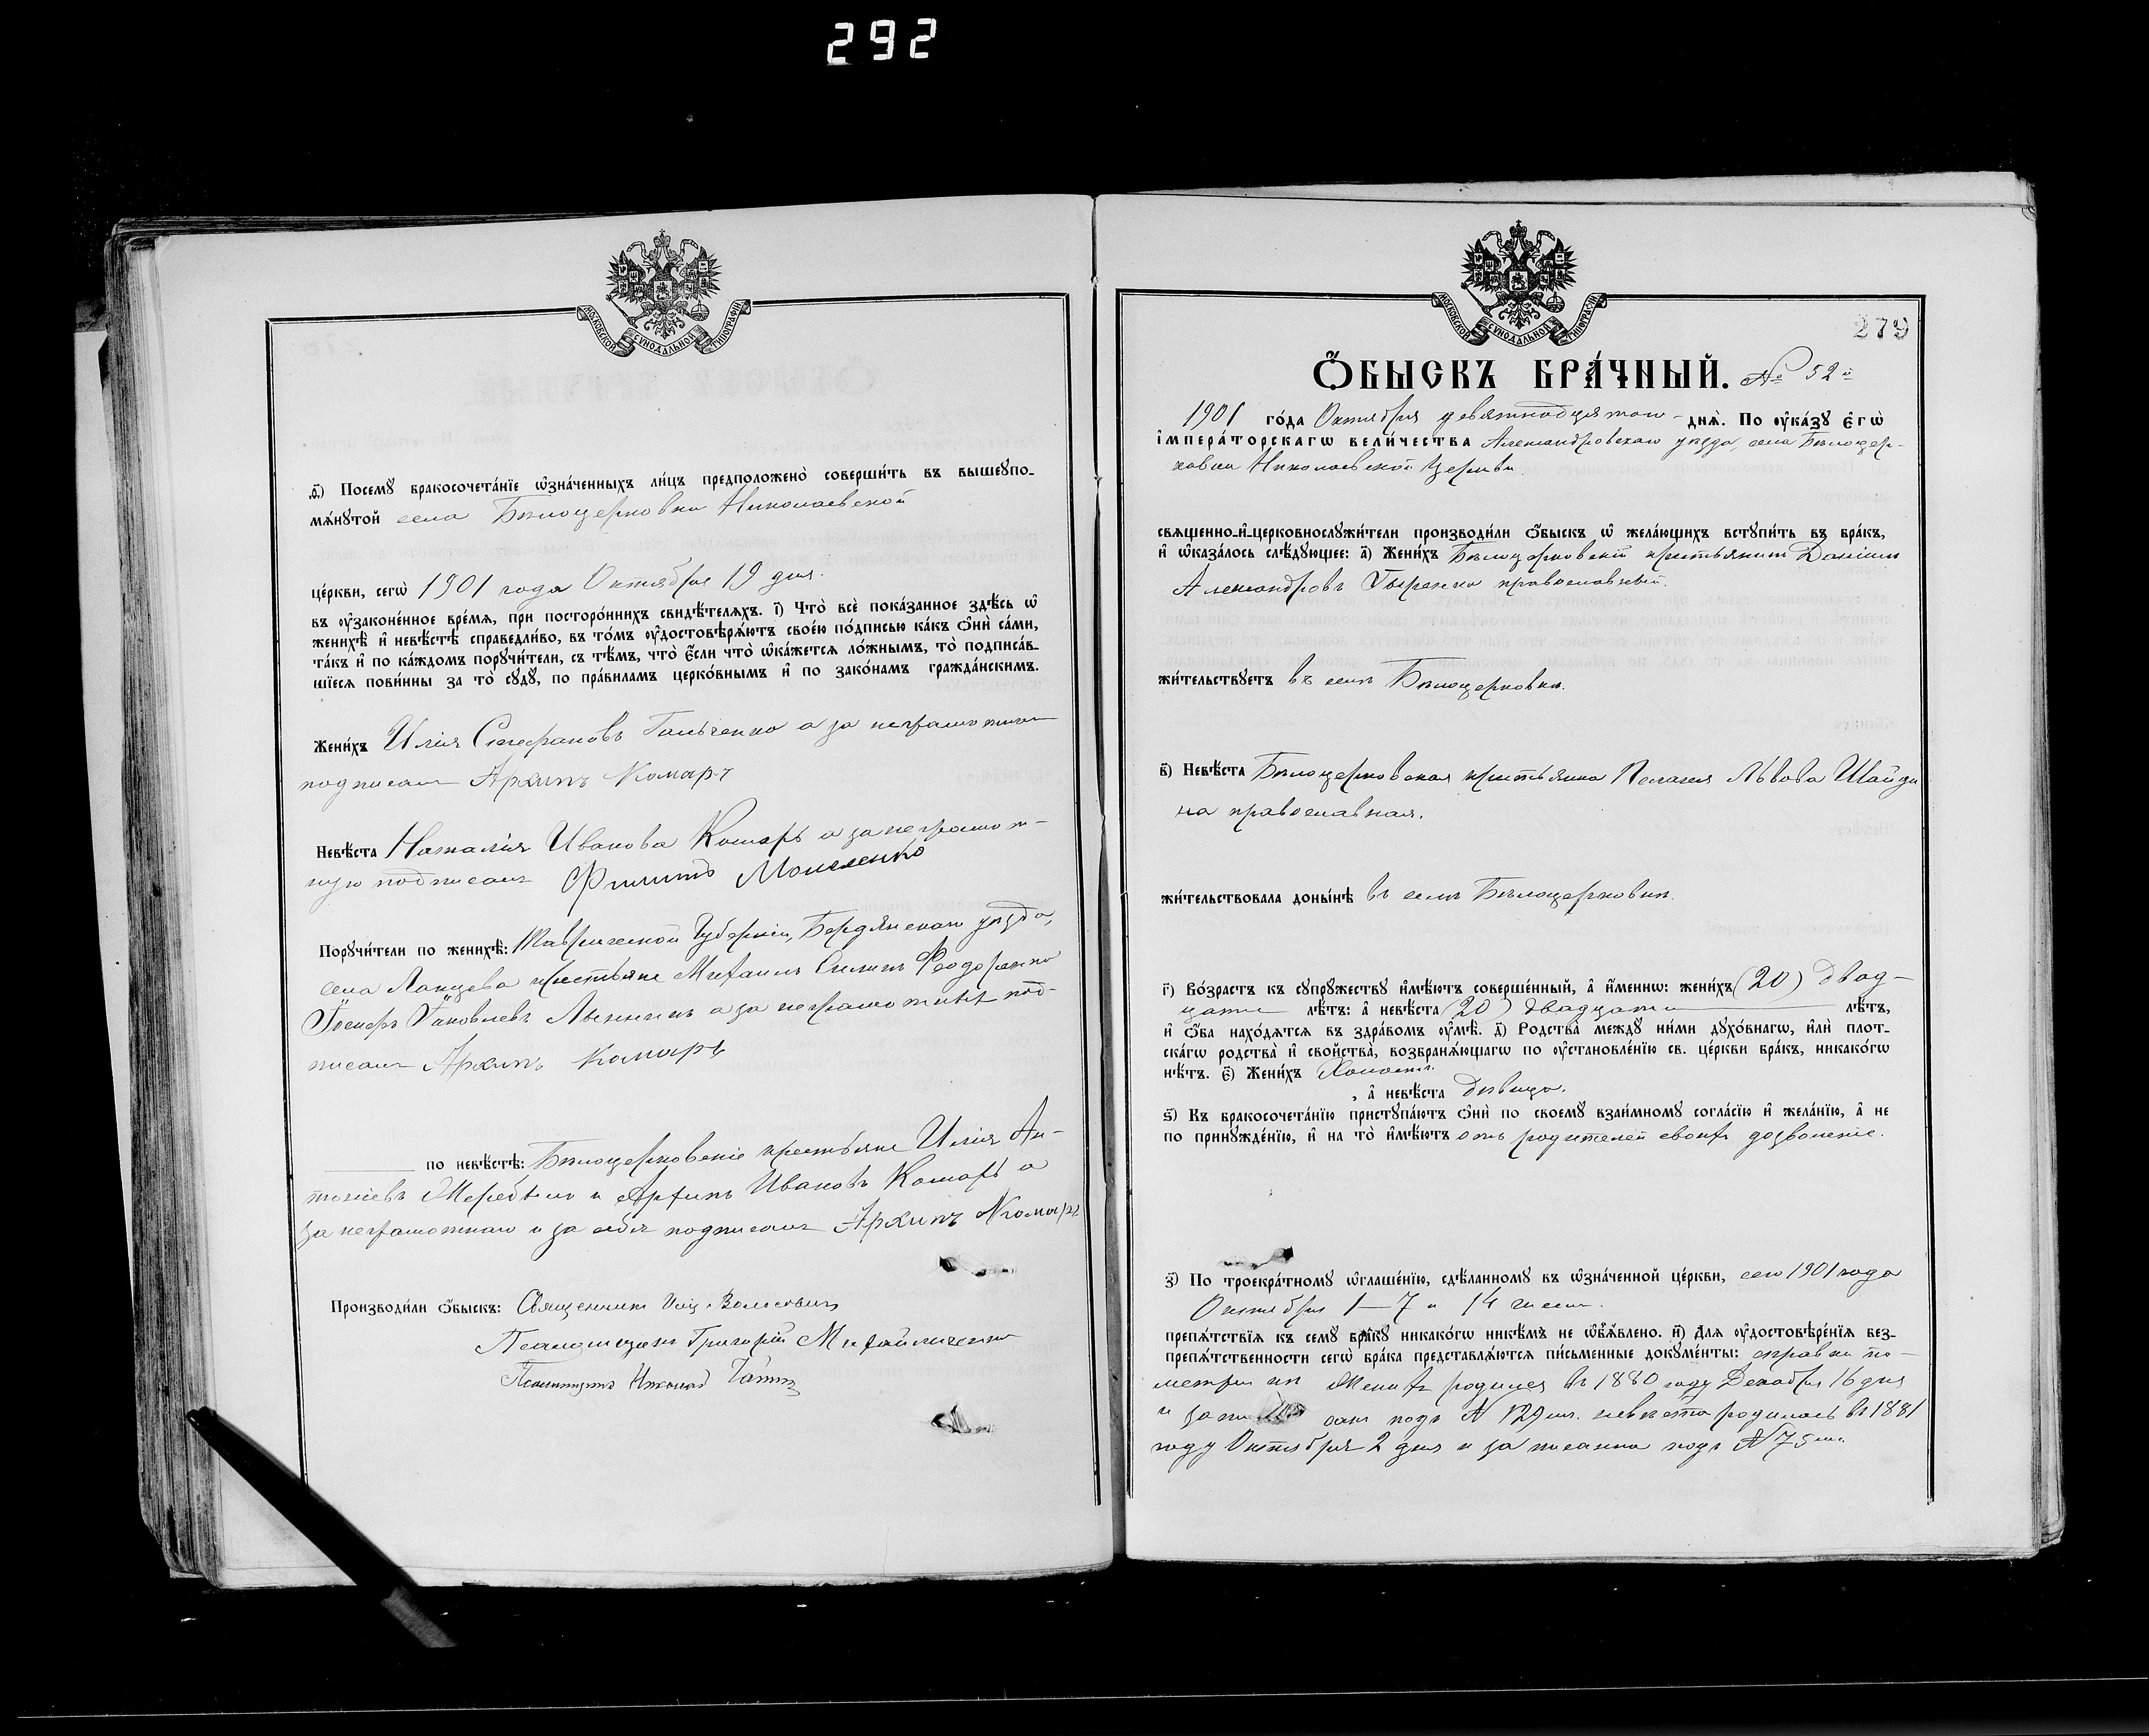 292
МОСКОВСКОЙ СѴНОДАЛЬНОЙ ТИПОГРАФІИ
д҃) Посемꙋ бракосочета́нїе ѡ҆зна́ченныхъ ли́цъ предположено̀ соверши́ть въ вышеꙋпо-
мѧ́нꙋтой села Бѣлоцерковки Николаевской
це́ркви, сегѡ̀ 1901 года Октября 19 дня.
въ ᲂу҆зако́ненное вре́мѧ, при посторо́ннихъ свидѣ́телѧхъ. і҃) Что̀ всѐ пока́занное здѣ́сь ѡ҆
женихѣ̀ и҆ невѣ́стѣ справедли́во, въ то́мъ ᲂу҆достовѣрѧ́ютъ свое́ю по́дписью ка́къ ѻ҆нѝ са́ми,
та́къ и҆ по ка́ждомъ порꙋчи́тели, съ тѣ́мъ, что̀ є҆́сли что̀ ѡ҆ка́жетсѧ ло́жнымъ, то̀ подписа́в-
шїесѧ пови́нны за то̀ сꙋдꙋ̀, по пра́виламъ церко́внымъ и҆ по зако́намъ гражда́нскимъ.
Жени́хъ Илія Стефановъ Гальченко а за неграмотнаго
подписалъ Архипъ Комаръ
Невѣ́ста Наталія Иванова Комаръ а за неграмот-
ную подписалъ Филипъ Моисеенко
Порꙋчи́тели по женихѣ̀: Таврической Губерніи, Бердянскаго уѣзда,
села крестьяне Михаилъ Феодоренко
Яковлевъ а за неграмотныхъ под-
писалъ Архипъ Комаръ
по невѣ́стѣ: Бѣлоцерковскіе крестьяне Илія Ан-
тоніевъ Жеребило и Архипъ Ивановъ Комаръ а
за неграмотнаго и за себя подписалъ Архипъ Комаръ
Производи́ли ѻ҆́быскъ: Священникъ
Псаломщикъ Григорій Михайличенко
Псаломщикъ Николай
МОСКОВСКОЙ СѴНОДАЛЬНОЙ ТИПОГРАФІИ
279
Ѻ҆́БЫСКЪ БРА́ЧНЫЙ. № 52й
1901 го́да Октября девятнадцятого дня̀. По ᲂу҆ка́зꙋ є҆гѡ̀
і҆мпера́торскагѡ вели́чества Александровскаго уѣзда, села Бѣлоцер-
ковки Николаевской Церкви
свѧщенно-и҆-церковнослꙋжи́тели производи́ли ѻ҆́быскъ ѡ҆ жела́ющихъ встꙋпи́ть въ бра́къ,
и҆ ѡ҆каза́лось слѣ́дꙋющее: а҃) Жени́хъ Бѣлоцерковскій крестьянинъ Даніилъ
Александровъ Гыренко православный.
жи́тельствꙋетъ въ селѣ Бѣлоцерковки.
в҃) Невѣ́ста Бѣлоцерковская крестьянка Пелагея Львова Шайди
на православная.
жи́тельствовала доны́нѣ въ селѣ Бѣлоцерковки.
г҃) Во́зрастъ къ сꙋпрꙋ́жествꙋ и҆мѣ́ютъ соверше́нный, а҆ и҆́меннѡ: жени́хъ (20) двад-
цати лѣ́тъ: а҆ невѣ́ста (20) двадцати лѣ́тъ,
и҆ ѻ҆́ба нахо́дѧтсѧ въ здра́вомъ ᲂу҆мѣ̀. д҃) Родства̀ междꙋ ни́ми дꙋхо́внагѡ, и҆лѝ плот-
ска́гѡ родства̀ и҆ сво́йства, возбранѧ́ющагѡ по ᲂу҆становле́нїю св. це́ркви бра́къ, никако́гѡ
нѣ́тъ. є҃) Жени́хъ Холостъ.
, а҆ невѣ́ста дѣвица.
ѕ҃) Къ бракосочета́нїю пристꙋпа́ютъ ѻ҆нѝ по своемꙋ̀ взаи́мномꙋ согла́сїю и҆ жела́нїю, а҆ не
по принꙋжде́нїю, и҆ на то̀ и҆мѣ́ютъ отъ родителей своихъ дозволеніе.
з҃) По троекра́тномꙋ ѡ҆глаше́нїю, сдѣ́ланномꙋ въ ѡ҆зна́ченной це́ркви, сего 1901 года
Октября 1—7 и 14 числа.
препѧ́тствїѧ къ семꙋ̀ бра́кꙋ никако́гѡ никѣ́мъ не ѡ҆б̾ѧ́влено. и҃) Длѧ ᲂу҆достовѣре́нїѧ без-
препѧ́тственности сегѡ̀ бра́ка представлѧ́ютсѧ пи́сьменные докꙋме́нты: справки по
метри ки Женихъ родился въ 1880 году Декабря 16 дня
и запи санъ подъ № 129 м. невѣста родилась въ 1881
году Октября 2 дня и записанна подъ № 75 ж.